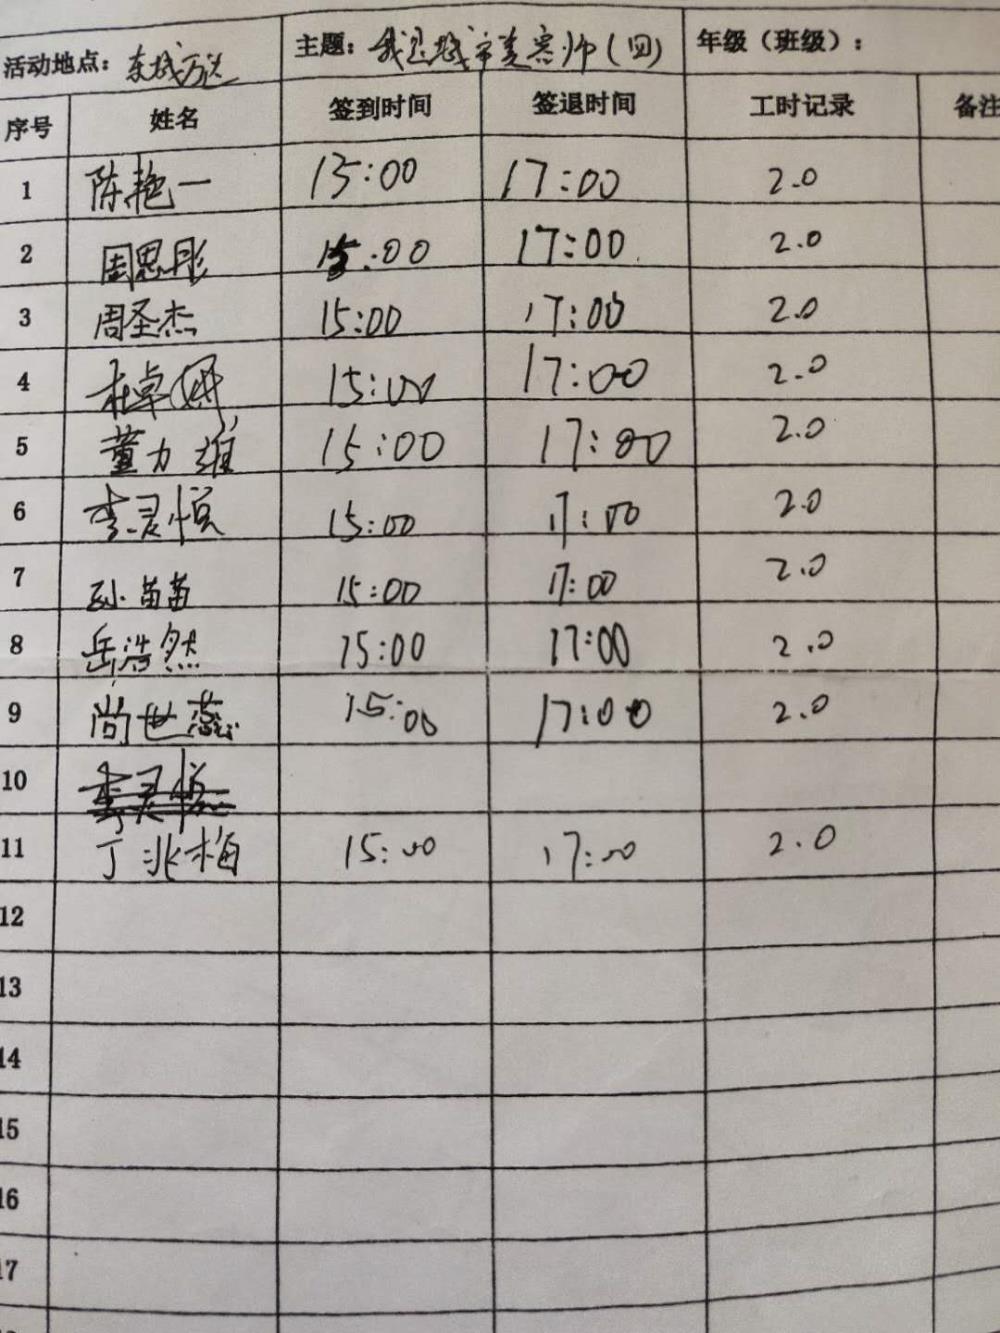 活动地点：东城万达 主题：我是城市美容师（四） 年级（班级）：
序号 姓名 签到时间 签退时间 工时记录 备注
1 陈艳一 15:00 17:00 2.0
2 周思彤 15:00 17:00 2.0
3 周圣杰 15:00 17:00 2.0
4 杜卓 15:00 17:00 2.0
5 董力维 15:00 17:00 2.0
6 李灵悦 15:00 17:00 2.0
7 孙苗苗 15:00 17:00 2.0
8 岳浩然 15:00 17:00 2.0
9 尚世蕊 15:00 17:00 2.0
10 李灵悦
11 丁兆梅 15:00 17:00 2.0
12
13
14
15
16
17